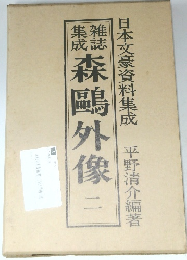 日本文豪資料集成
雑誌集成
森鷗外像 二
平野清介編著